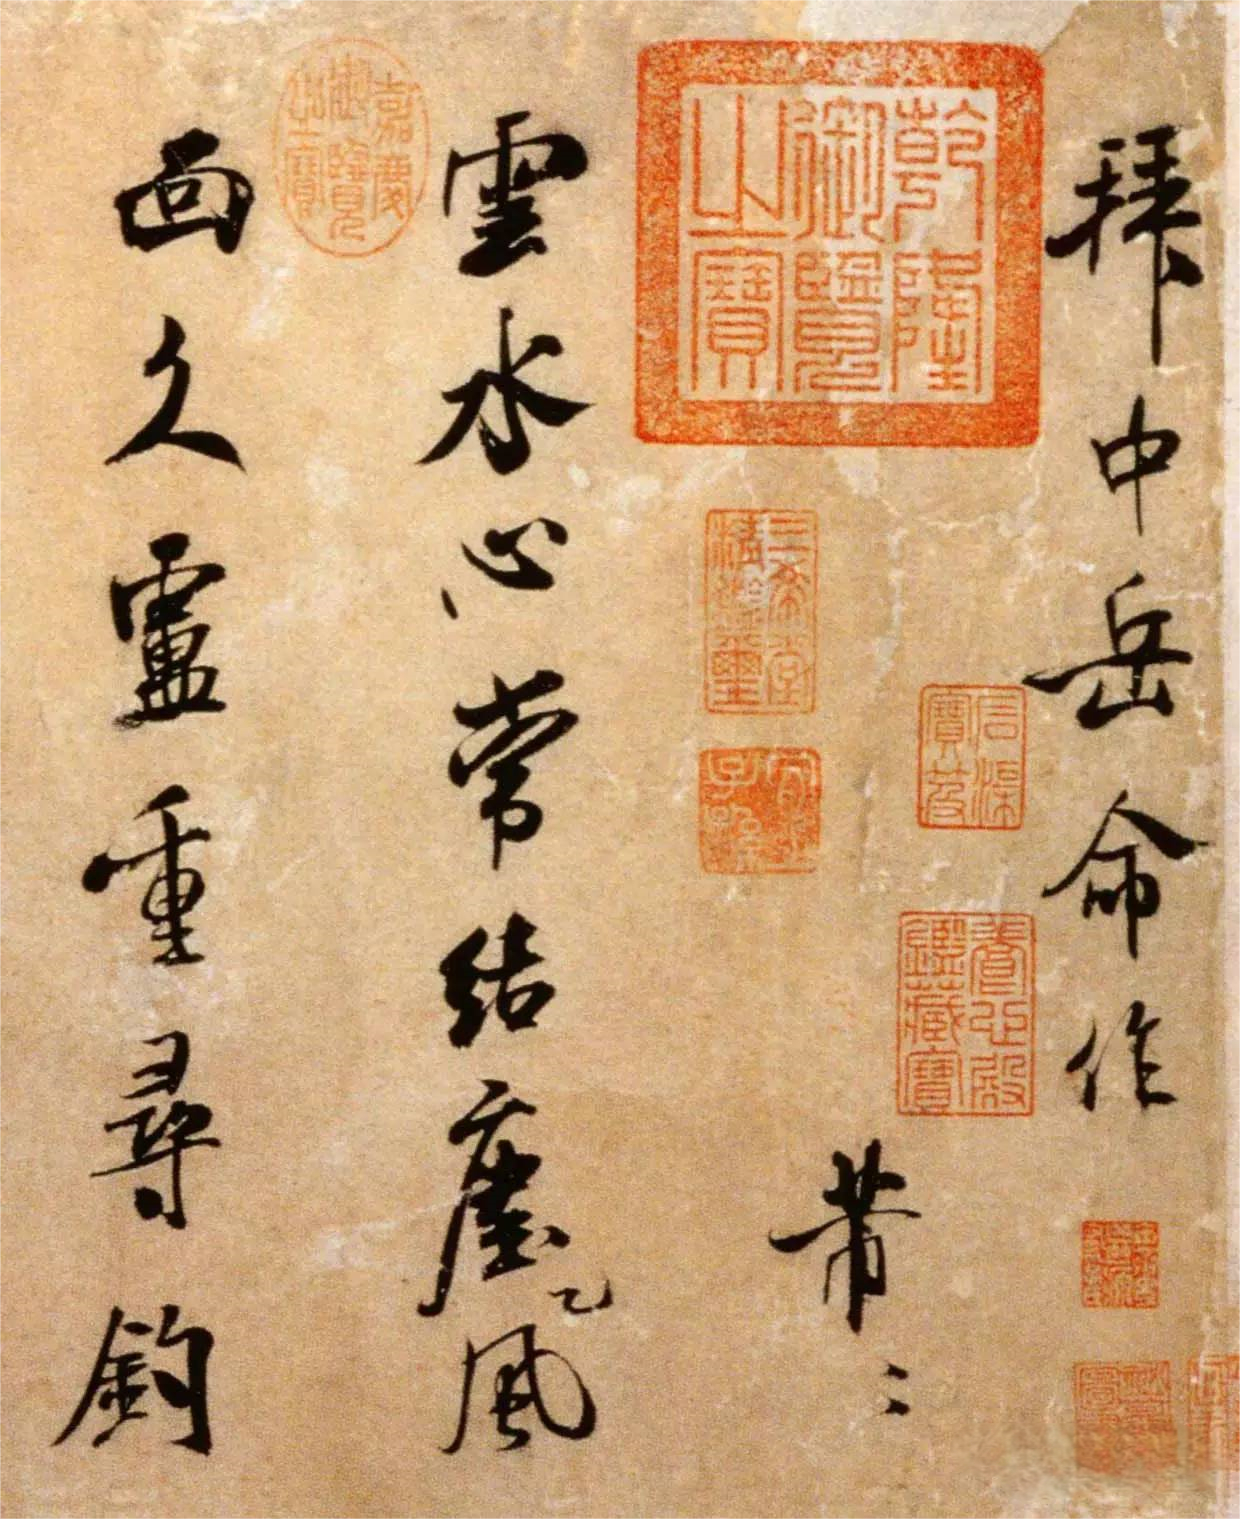 拜中岳命作
石渠寶笈
養心殿鑑藏寶
芾
乾隆御覽之寶
三希堂精鑑璽
宜子孫
雲水心常結塵風
嘉慶御覽之寶
面久盧重尋釣